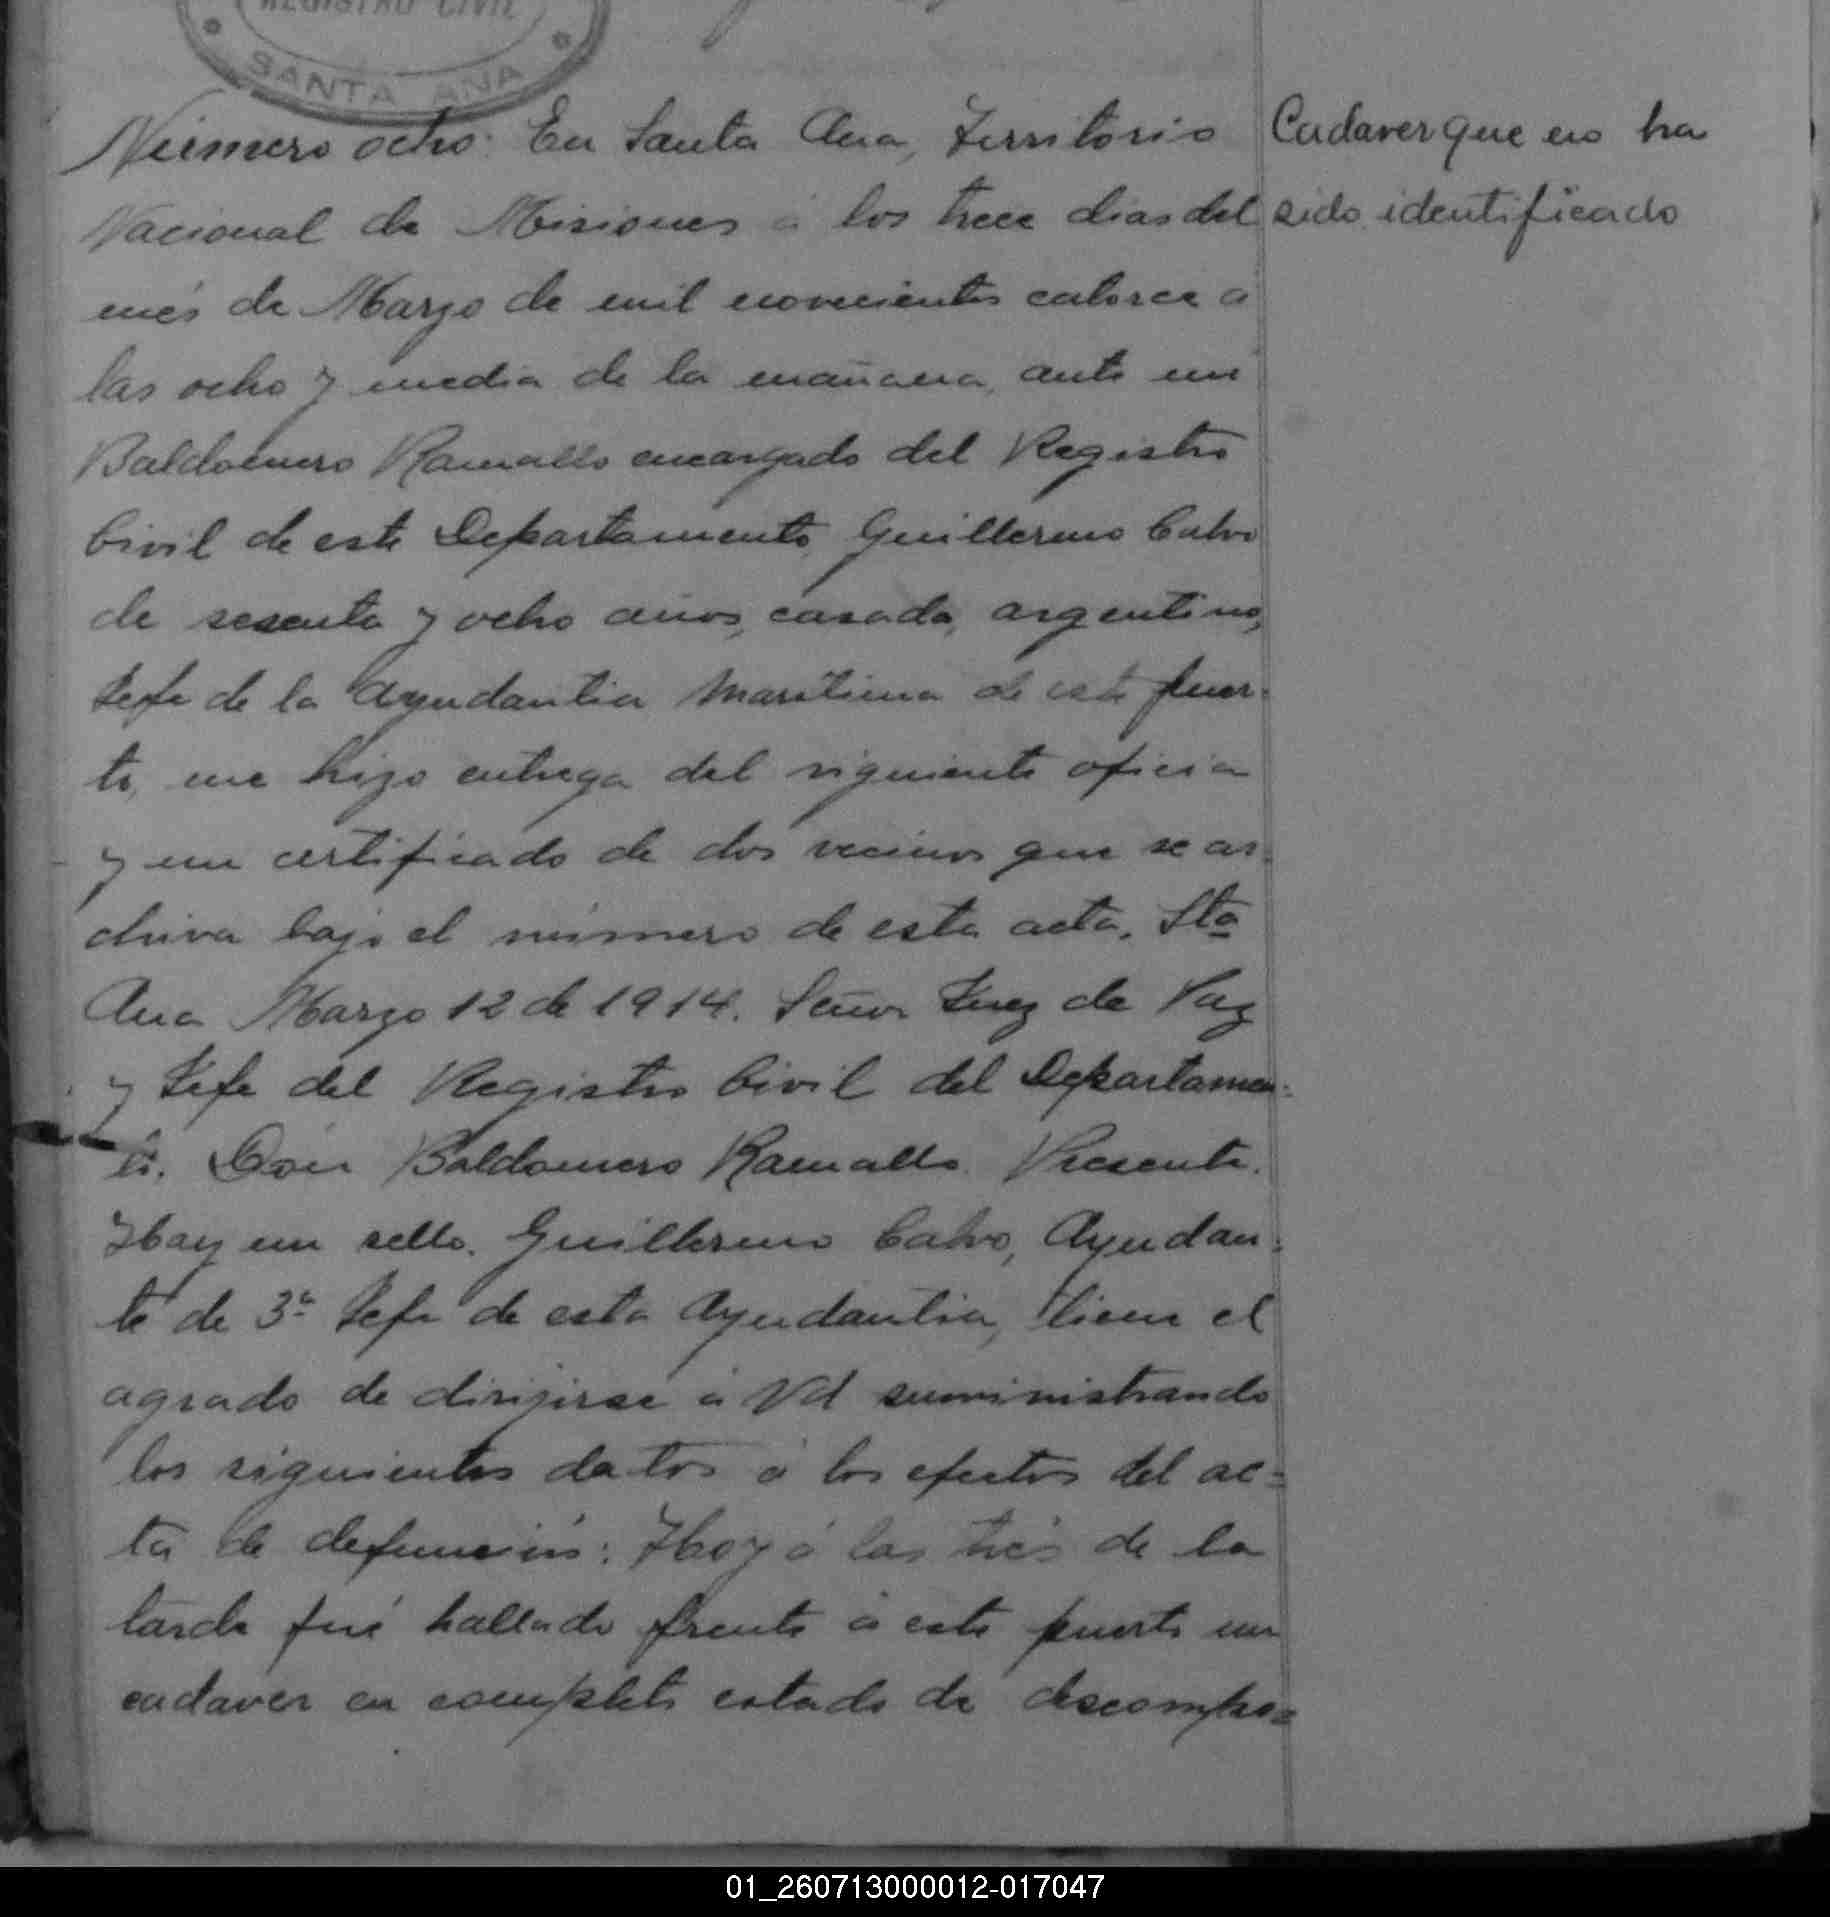 REGISTRO CIVIL
SANTA ANA
Número ocho: En Santa Ana, Territorio
Nacional de Misiones á los trece dias del
més de Marzo de mil novecientos catorce a
las ocho y media de la mañana, ante mi
Baldomero Ramallo encargado del Registro
Civil de este Departamento, Guillermo Calvo
de sesenta y ocho años, casado, argentino,
Jefe de la Ayudantia Maritima de este puer-
to, me hizo entrega del siguiente oficio
y un certificado de dos vecinos que se ar-
chiva bajo el número de esta acta. Sta
Ana Marzo 12 de 1914. Señor Juez de Paz
y Jefe del Registro Civil del Departamen-
to. Don Baldomero Ramallo. Presente.
Hay un sello. Guillermo Calvo, Ayudan-
te de 3ª Jefe de esta Ayudantia, tiene el
agrado de dirijirse á Vd suministrando
los siguientes datos á los efectos del ac-
ta de defunción: Hoy á las trés de la
tarde fué hallado frente á este puerto un
cadaver en completo estado de descompo-
Cadaver que no ha
sido identificado
01_260713000012-017047